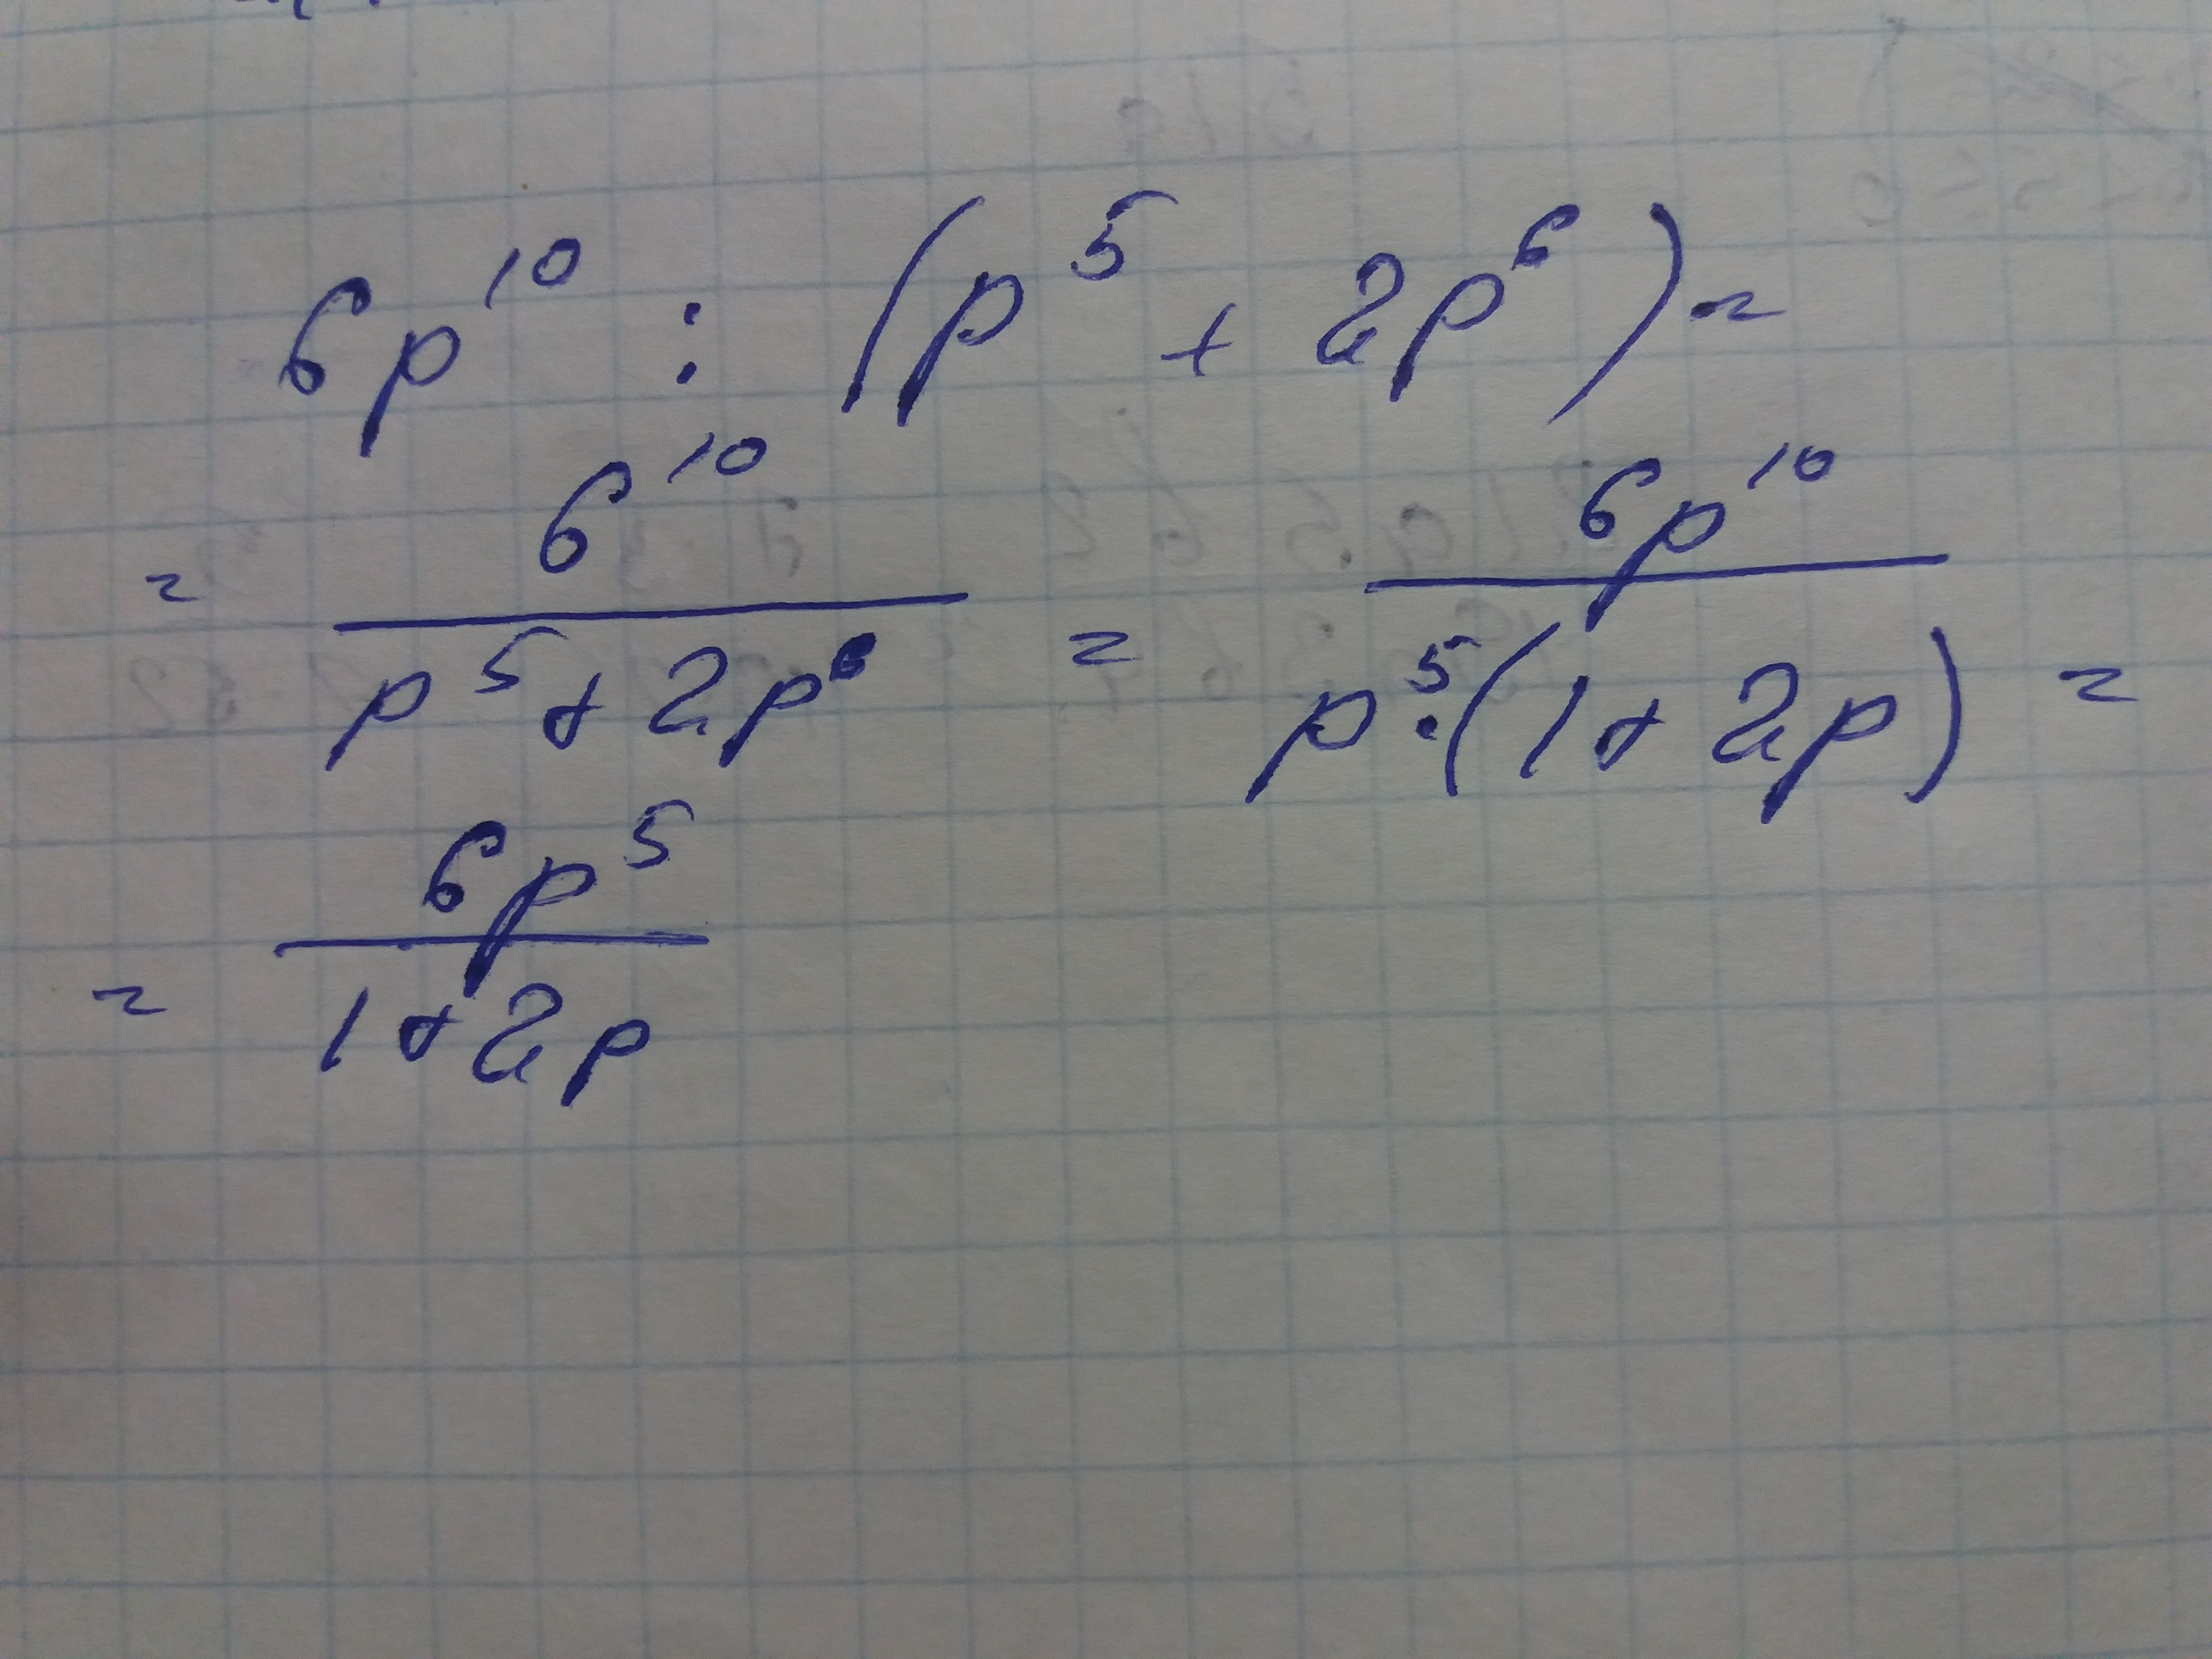 6p¹⁰ : (p⁵ + 2p⁶) =
= 6¹⁰/(p⁵ + 2p⁶) = 6p¹⁰/(p⁵·(1 + 2p)) =
= 6p⁵/(1 + 2p)